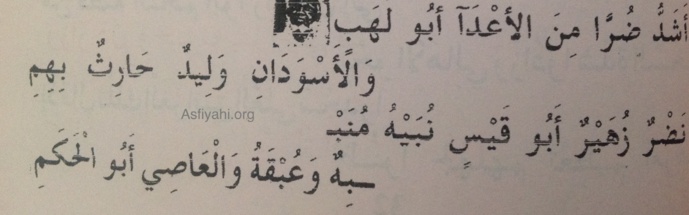 أَشَدُّ ضُرًّا مِنَ الأَعْدَآ أَبُو لَهَبٍ
وَالأَسْوَدَانِ وَلِيدٌ حَارِثٌ بِهِمِ
Asfiyahi.org
نَضْرٌ زُهَيْرٌ أَبُو قَيْسٍ نُبَيْهُ مُنَبْـ
ـبِهٌ وَعُبْقَةُ وَالْعَاصِي أَبُو الْحَكَمِ